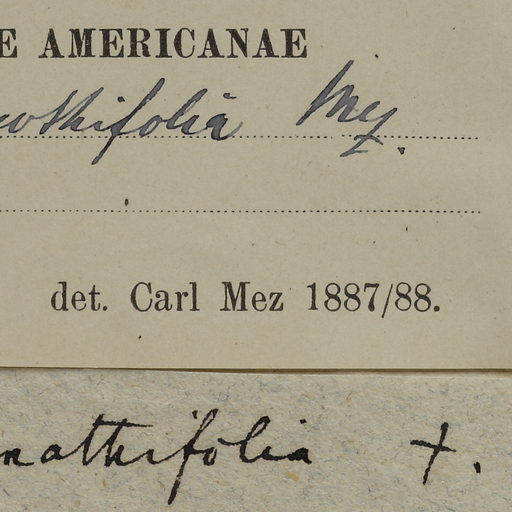 E AMERICANAE
othifolia Mez.
det. Carl Mez 1887/88.
nathifolia †.